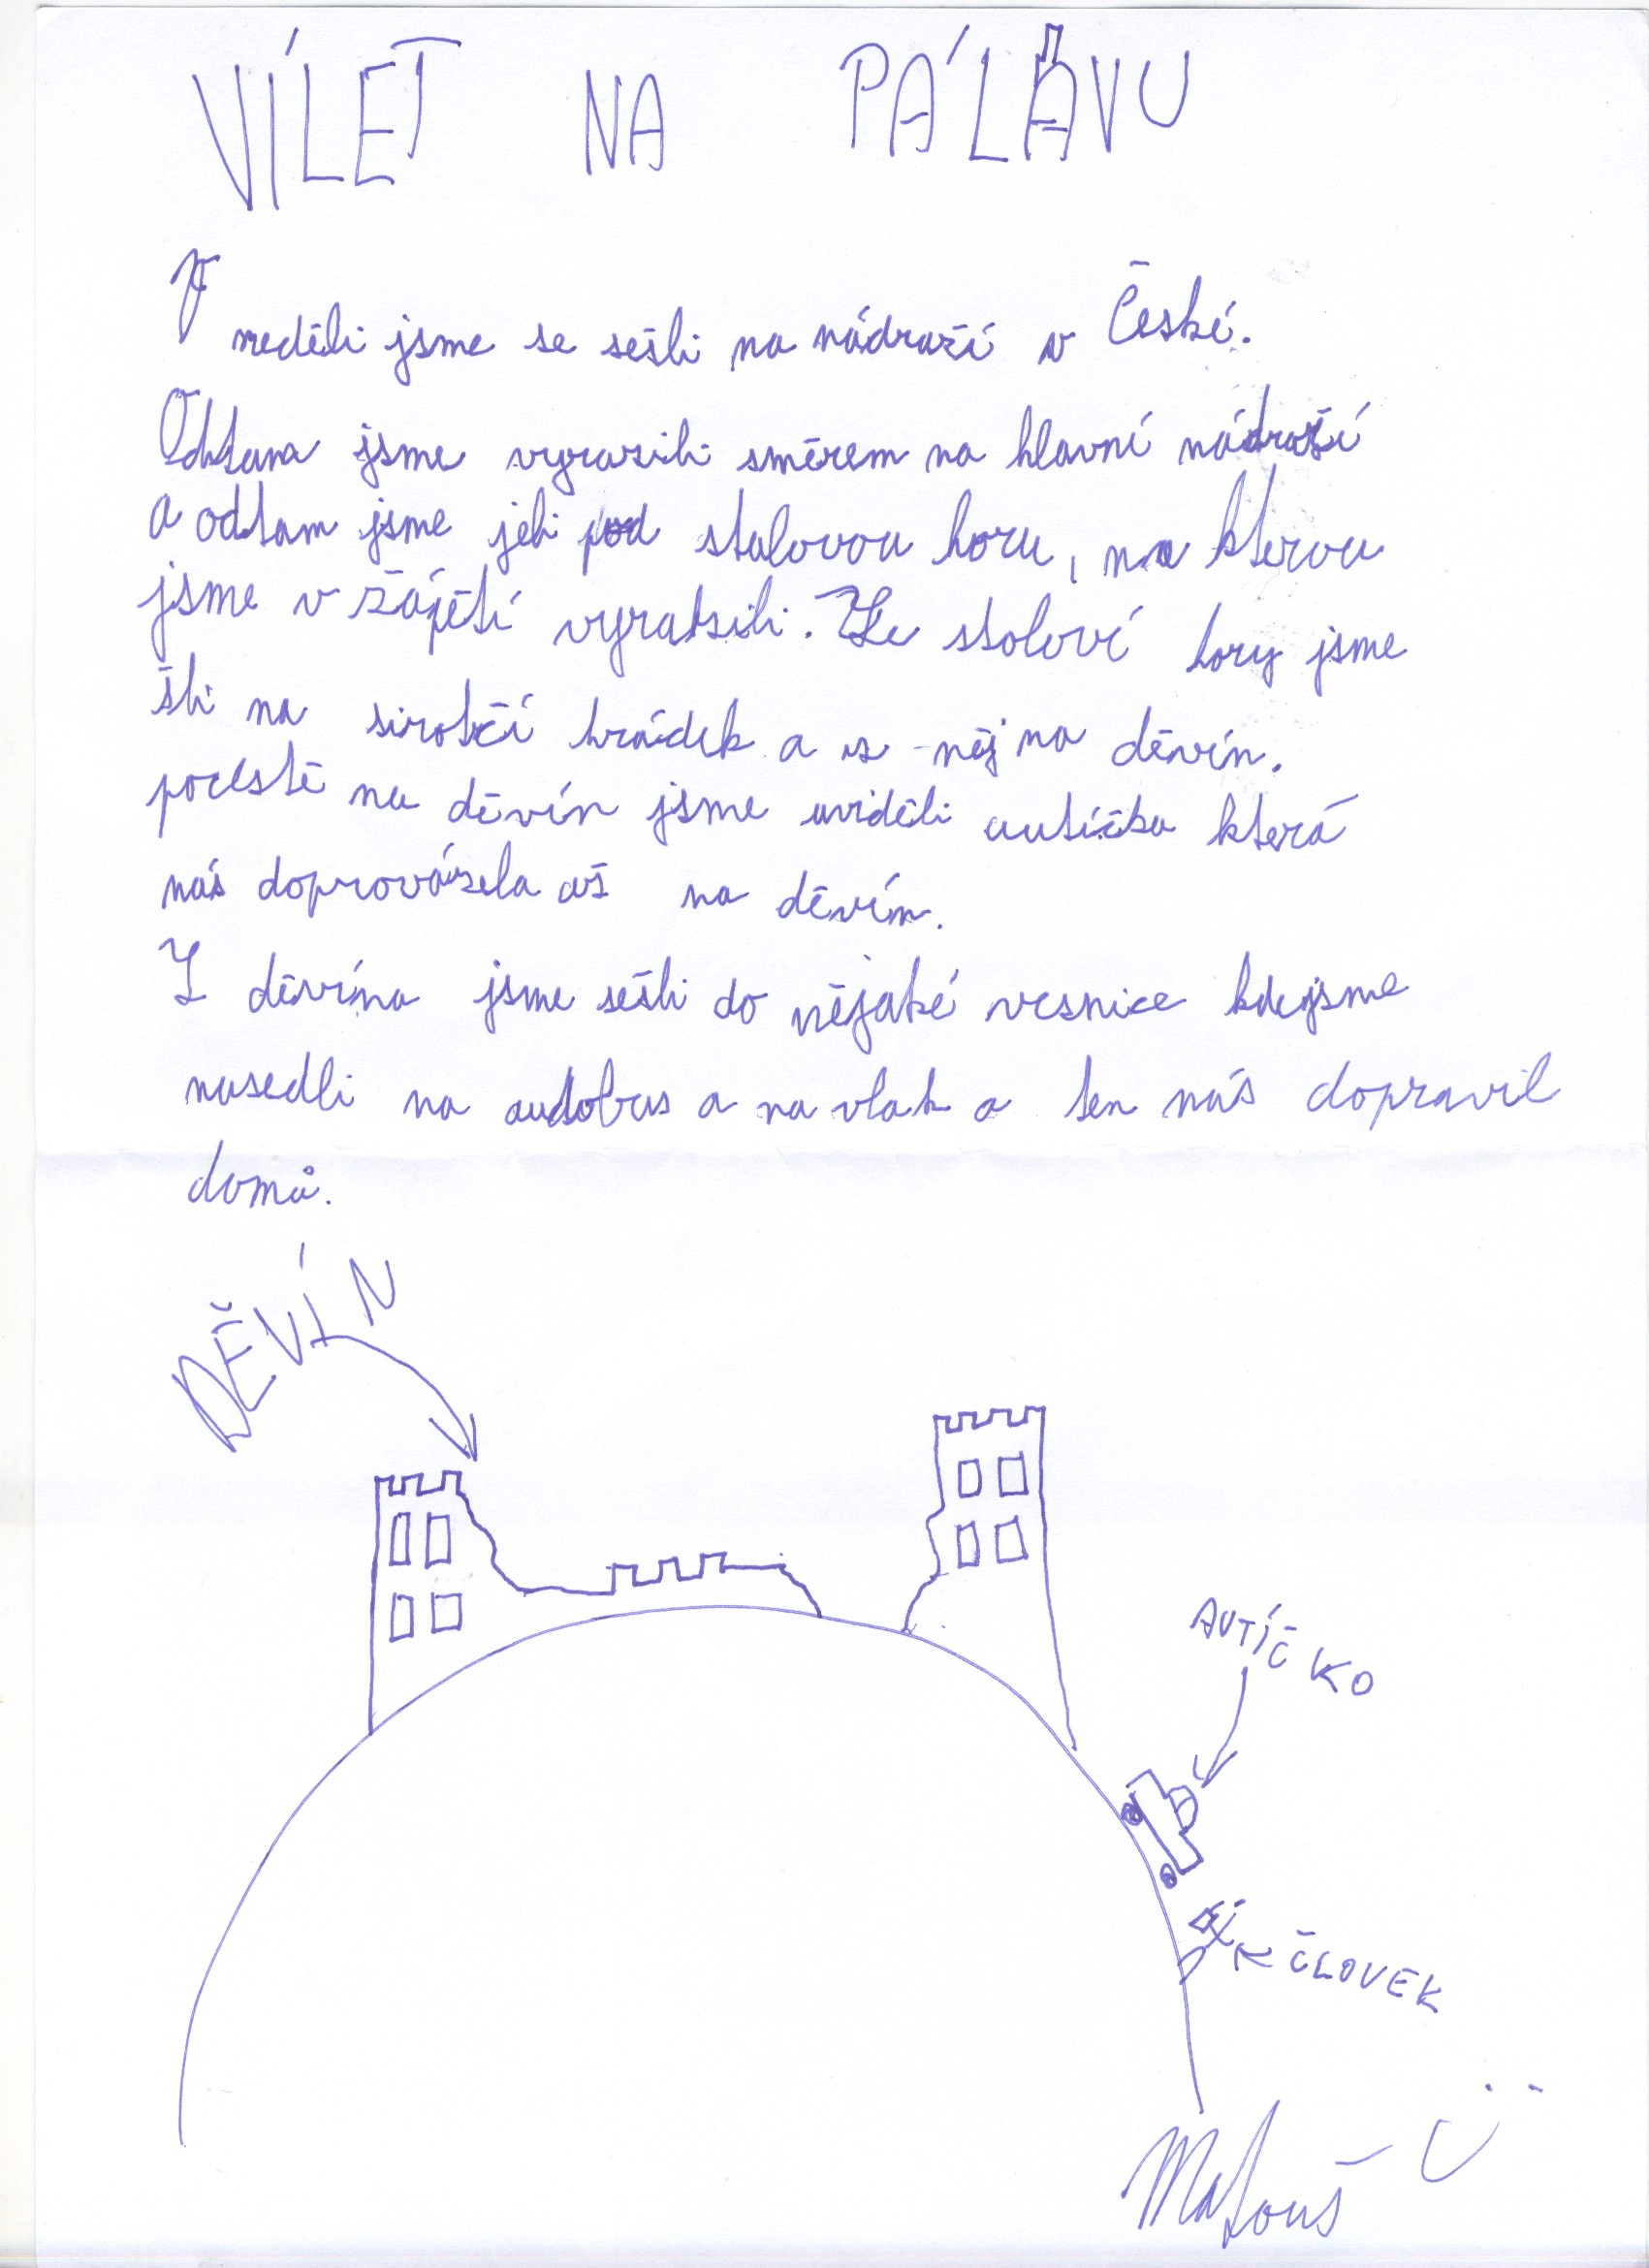 VÍLET NA PÁLAVU
V neděli jsme se sešli na nádraží v České.
Odtama jsme vyrazili směrem na hlavní nádraží
a odtam jsme jeli pod stolovou horu, na kterou
jsme v zápětí vyrazili. Ze stolové hory jsme
šli na sirotčí hrádek a z něj na děvín.
pocestě na děvín jsme uviděli autíčka která
nás doprovázela až na děvín.
Z děvína jsme sešli do nějaké vesnice kdejsme
nasedli na audobus a na vlak a ten nás dopravil
domů.
DĚVÍN
AUTÍČKO
ČLOVEK
Matouš